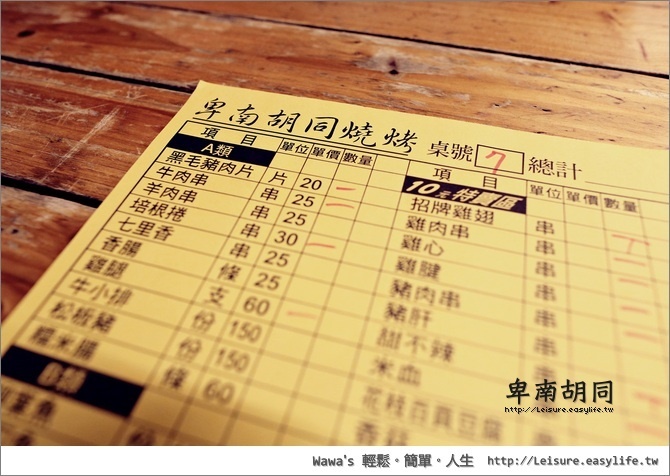 卑南胡同燒烤 桌號 7 總計
項目 單位 單價 數量
A類
黑毛豬肉片 片 20 二
牛肉串 串 25 二
羊肉串 串 25
培根捲 串 30 二
七里香 串 25
香腸 條 25
雞腿 支 60
牛小排 份 150
松板豬 份 150
糯米腸 條 60
B類
項目 單位 單價 數量
10元特賣區
招牌雞翅 串
雞肉串 串
雞心 串
雞腱 串
豬肉串 串
豬肝 串
甜不辣 串
米血
花枝百頁豆腐
卑南胡同
http://Leisure.easylife.tw
Wawa's 輕鬆。簡單。人生 http://Leisure.easylife.tw